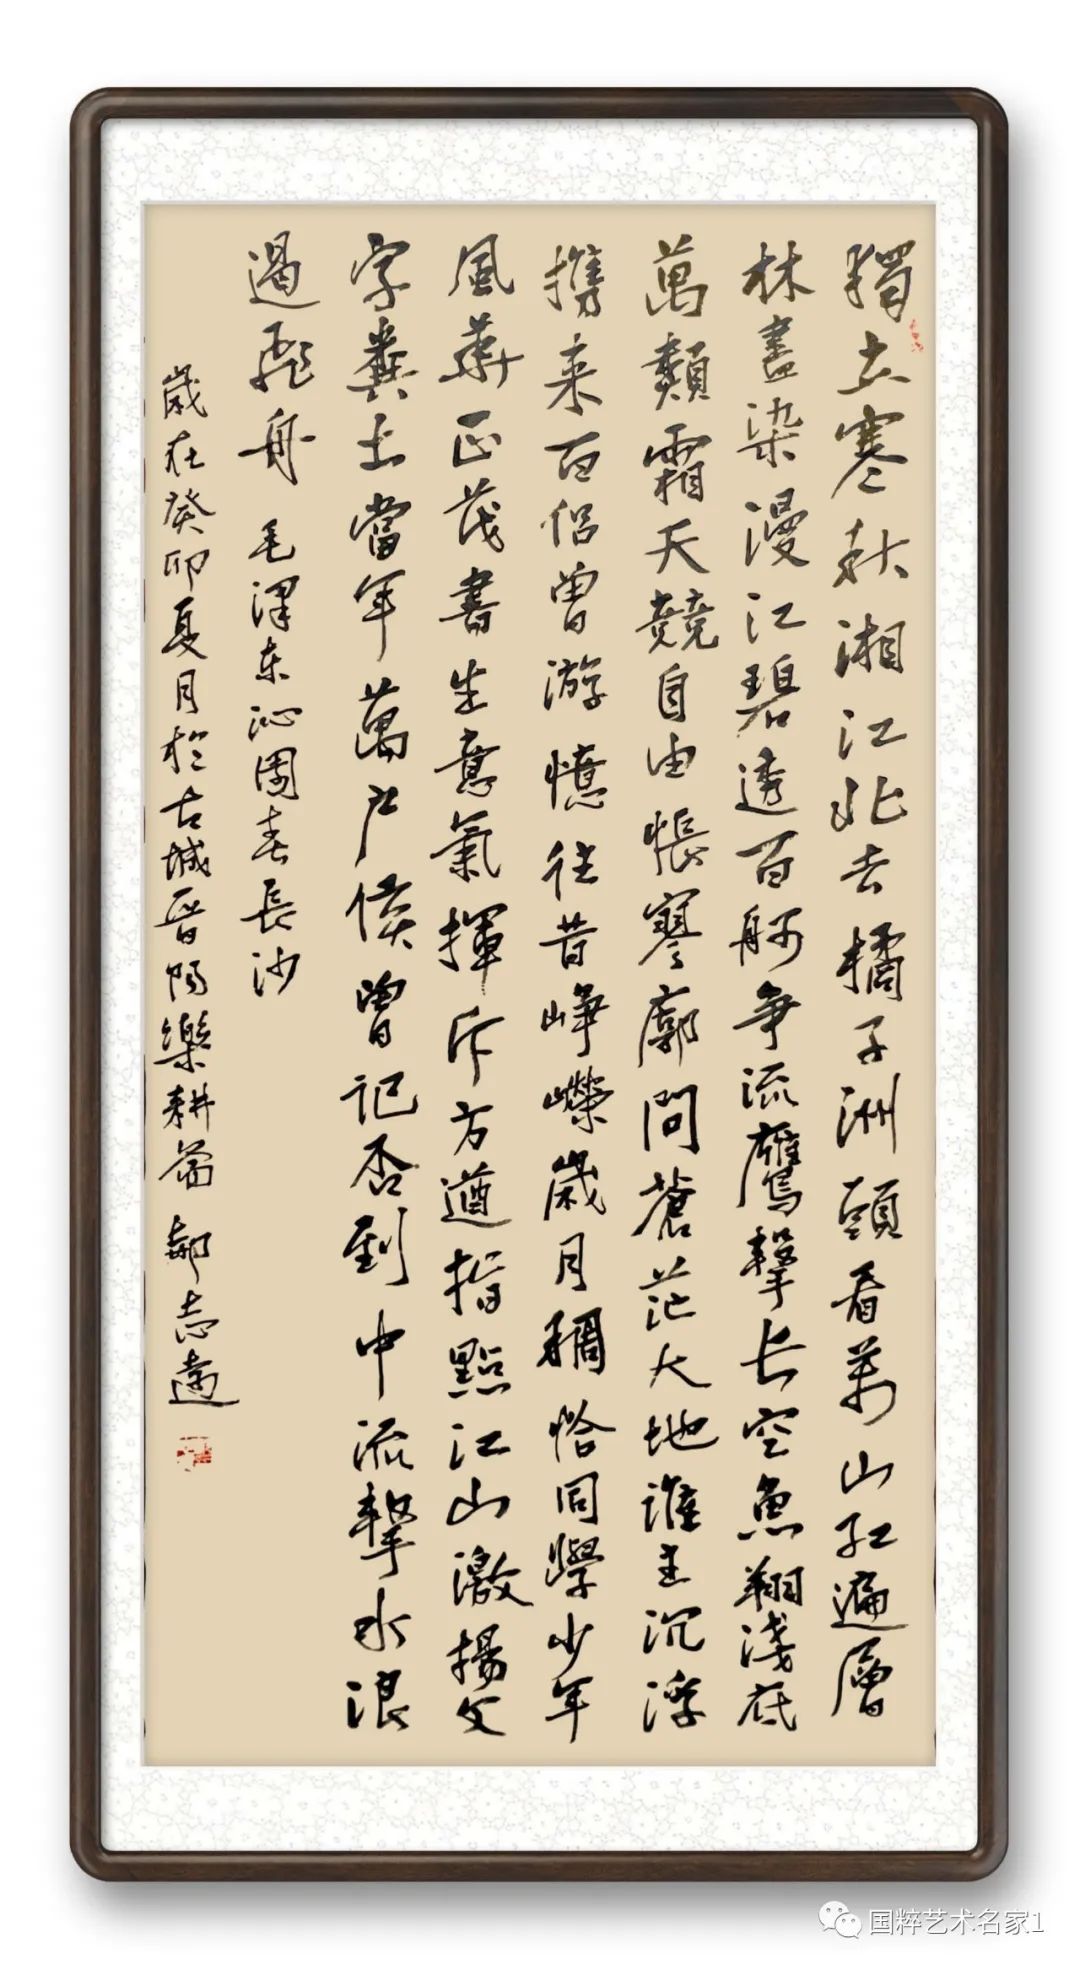 獨立寒秋湘江北去橘子洲頭看萬山紅遍層
林盡染漫江碧透百舸爭流鷹擊長空魚翔淺底
萬類霜天競自由悵寥廓問蒼茫大地誰主沉浮
携来百侶曾游憶往昔崢嶸歲月稠恰同學少年
風華正茂書生意氣揮斥方遒指點江山激揚文
字糞土當年萬户侯曾記否到中流擊水浪
遏飛舟 毛澤东沁園春長沙
歲在癸卯夏月於古城晋陽樂耕斋 郝志遠
国粹艺术名家1